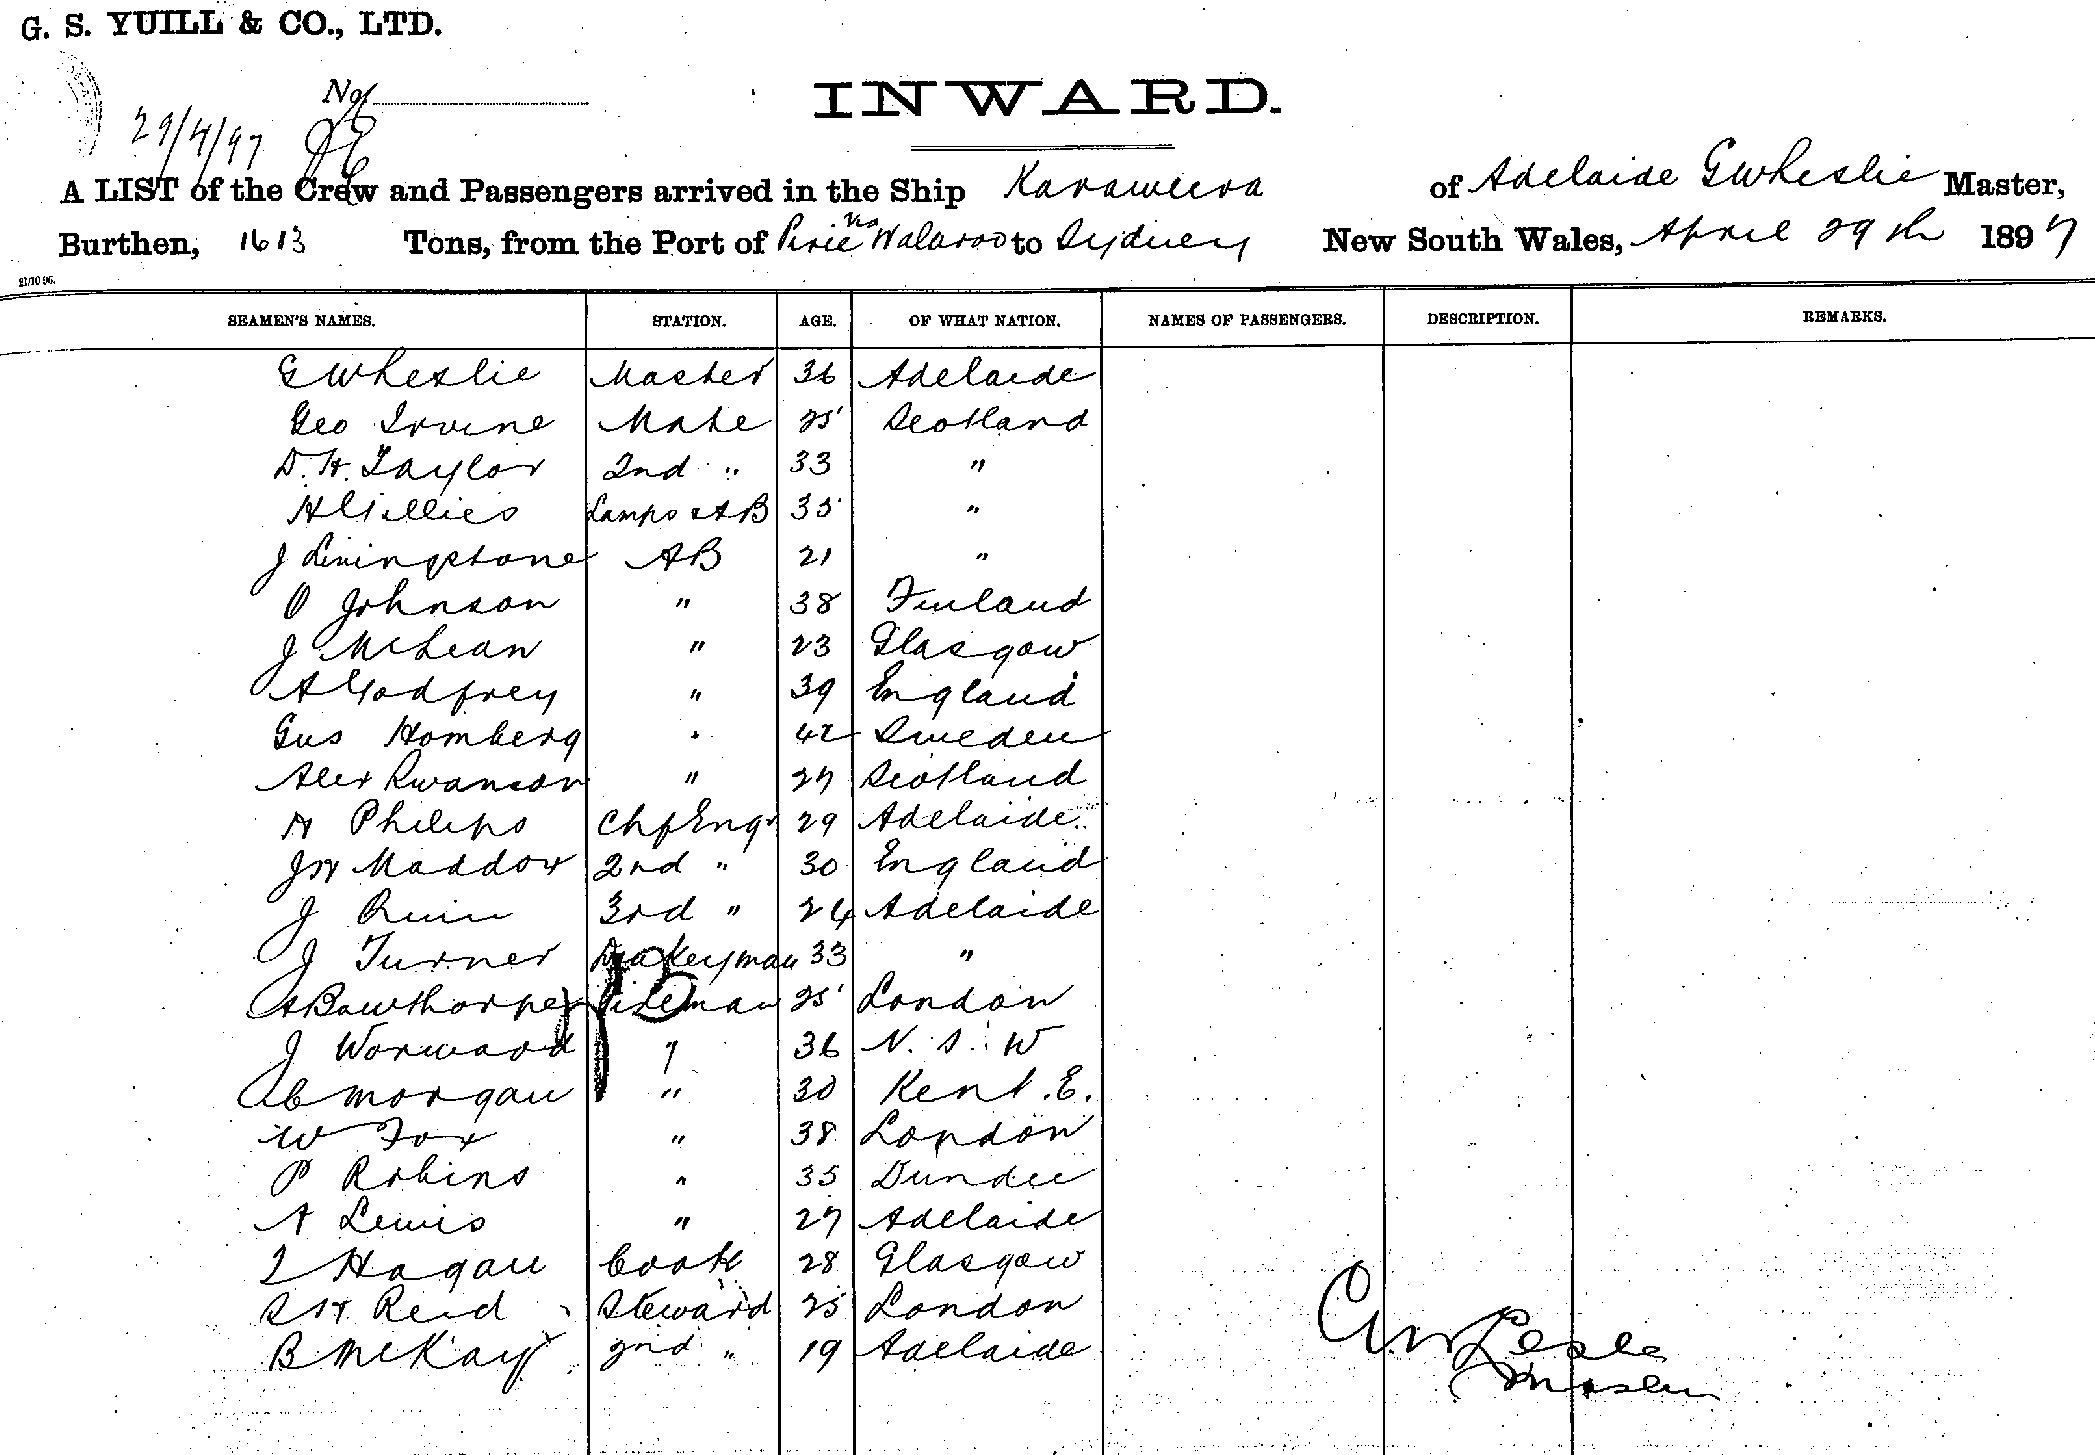 G. S. YUILL & CO., LTD.
No
INWARD.
29/4/97
A LIST of the Crew and Passengers arrived in the Ship Karaweera of Adelaide GW Leslie Master,
Burthen, 1613 Tons, from the Port of Pirie via Walaroo to Sydney New South Wales, April 29th 1897
21/10/96.
SEAMEN'S NAMES. STATION. AGE. OF WHAT NATION. NAMES OF PASSENGERS. DESCRIPTION. REMARKS.
GW Leslie Master 36 Adelaide
Geo Irvine Mate 25 Scotland
D. H. Taylor 2nd " 33 "
H Gillies Lamps & AB 35 "
J Livingstone AB 21 "
O Johnson " 38 Finland
J McLean " 23 Glasgow
A Godfrey " 39 England
Gus Homberg " 42 Sweden
Alex Swanson " 27 Scotland
H Philips Chf Engr 29 Adelaide
JW Maddox 2nd " 30 England
J Quin 3rd " 24 Adelaide
J Turner Donkeyman 33 "
A Bawthorpe Fireman 25 London
J Worwood " 36 N. S. W
A C Morgan " 30 Kent. E.
W Fox " 38 London
P Robins " 35 Dundee
A Lewis " 27 Adelaide
Hagan Cook 28 Glasgow
Reid Steward 25 London
B McKay 2nd " 19 Adelaide
GW Leslie
Master